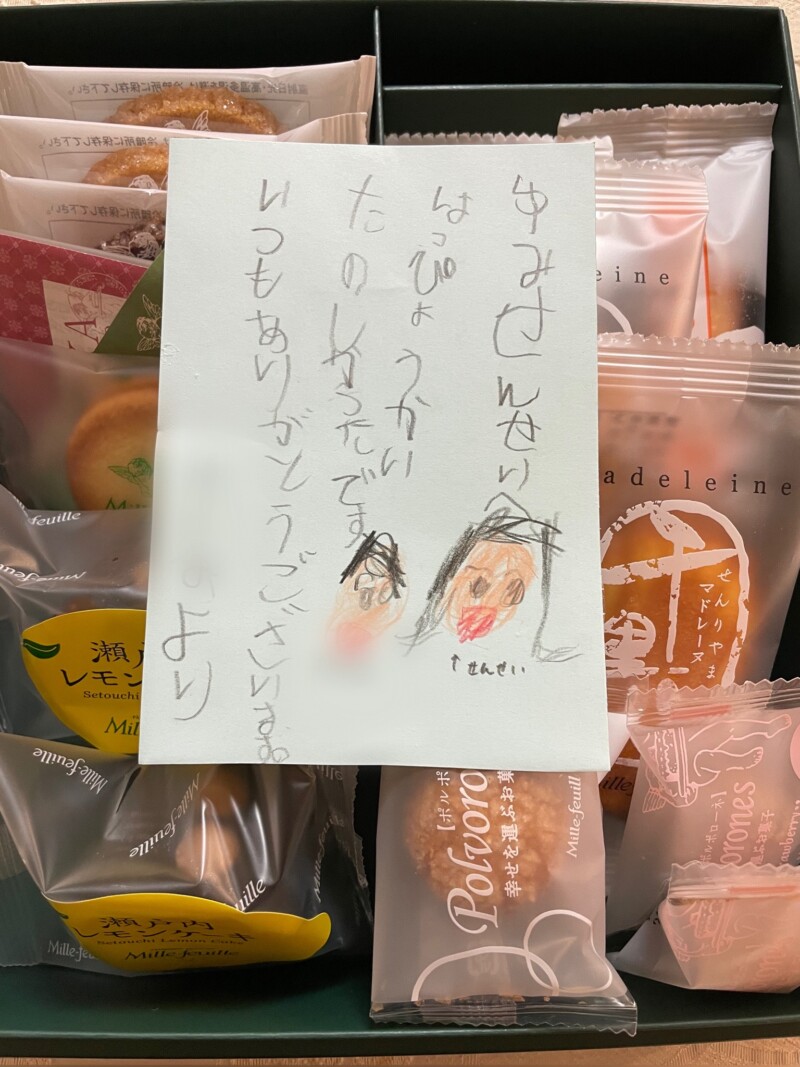 ゆみせんせいへ
はっぴょうかい
たのしかったです
いつもありがとうございます。
より
↑せんせい
eine
adeleine
せんりやま
マドレーヌ
千里
Mille-feuille
Mille-feuille
瀬戸
レモン
Setouchi
Mill
Mille-feuille
Mille-feuille
瀬戸内
レモンケーキ
Setouchi Lemon Cake
Mille-feuille
Mille-feu
【ポルポ
Polvoro
幸せを運ぶお菓
Mille-feuille
ポルボローネ】
orones